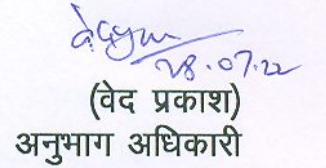 28.07.22
(वेद प्रकाश)
अनुभाग अधिकारी